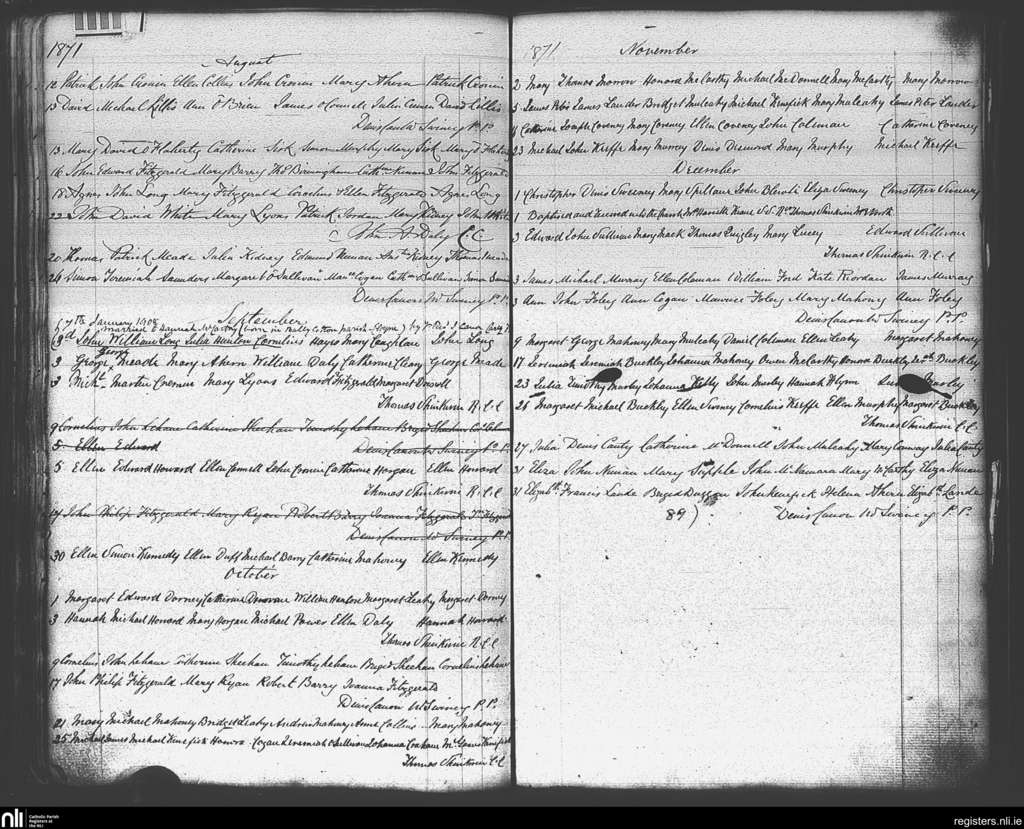 1871
August
12 Patrick John Cronin Ellen Collins John Cronin Mary Ahern Patrick Cronin
15 David Michael Ann O'Brien James O'Connell Julia David
Denis Canon McSwiney P.P.
13 Mary David O'Flaherty Catherine Sisk Simon Murphy Mary Sisk Mary O'Flaherty
16 John Edward Fitzgerald Mary Barry John Fitzgerald
18 Agnes John Long Mary Fitzgerald Cornelius & Ellen Fitzgerald Agnes Long
22 John David White Mary Lyons Patrick Jordan Mary Kidney John White
John A Daly C.C
Thomas Patrick Meade Julia Kidney Edmund Kidney Thomas Meade
24 Jeremiah Saunders Margaret O'Sullivan Cogan Sullivan
Denis Canon McSwiney P.P.
September
7th January 1908
Married to Hannah McCarthy
John William Long Julia Hanlon Cornelius Hayes Mary Coughlan John Long
George
3 George Meade Mary Ahern William Daly Catherine Cleary George Meade
3 Michl. Martin Cronin Mary Lyons Edward Fitzgerald Margaret Dowell
Thomas Shinkwin R.C.C
9 Cornelius John Lehane Catherine Sheehan Timothy Lehane Bridget Sheehan
5 Ellen Edward Denis Canon McSwiney P.P.
5 Ellen Edward Howard Ellen Connell John Cronin Catherine Horgan Ellen Howard
Thomas Shinkwin R.C.C
17 John Philip Fitzgerald Mary Ryan Robert Barry Joanna Fitzgerald
Denis Canon McSwiney P.P.
30 Ellen Simon Kennedy Ellen Duff Michael Barry Catherine Mahoney Ellen Kennedy
October
1 Margaret Edward Dorney Catherine Donovan William Hanlon Margaret Leahy Margaret Dorney
3 Hannah Michael Howard Mary Horgan Michael Power Ellen Daly Hannah Howard
Thomas Shinkwin R.C.C
9 Cornelius John Lehane Catherine Sheehan Timothy Lehane Bridget Sheehan Cornelius Lehane
17 John Philip Fitzgerald Mary Ryan Robert Barry Joanna Fitzgerald
Denis Canon McSwiney P.P.
21 Mary Michael Mahoney Bridget Leahy Andrew Mahony Anne Collins Mary Mahoney
25 Michael James Michael Kenefick Honora Cogan Jeremiah O'Sullivan Johanna
Thomas Shinkwin C.C
1871
November
2 Mary Thomas Morrow Honora McCarthy Michael McDonnell Mary McCarthy Mary Morrow
5 James Peter James Lander Bridget Mulcahy Michael Kenefick Mary Mulcahy James Peter Lander
Catherine Joseph Coveney Mary Coveney Ellen Coveney John Colman Catherine Coveney
23 Michael John Keeffe Mary Murray Denis Desmond Mary Murphy Michael Keeffe
December
1 Christopher Denis Sweeney Mary Spillane John Eliza Sweeney Christopher Sweeney
1 Baptised and received into the church Thomas Shinkwin
3 Edward John Sullivan Mary Mack Thomas Quigley Mary Lucey Edward Sullivan
Thomas Shinkwin R.C.C
3 James Michael Murray Ellen Coleman William Ford Kate Riordan James Murray
3 Ann John Foley Ann Cogan Maurice Foley Mary Mahony Ann Foley
Denis Canon McSwiney P.P.
9 Margaret George Mahony Mary Mulcahy Daniel Colman Ellen Leahy Margaret Mahony
17 Jeremiah Jeremiah Buckley Johanna Mahony Owen McCarthy Honora Buckley Buckley
23 Julia Timothy Johanna Kelly John Hannah Flynn
26 Margaret Michael Buckley Ellen Cornelius Keeffe Ellen Murphy Margaret Buckley
Thomas Shinkwin C.C.
27 Julia Denis Canty Catherine McDonnell John Mulcahy Mary Conway Julia Canty
31 Eliza John Nunan Mary Supple John McNamara Mary McCarthy Eliza Nunan
31 Elizabth. Francis Lande Bridget Duggan John Kenefick Helena Ahern Elizabth. Lande
89) Denis Canon McSwiney P.P.
nli
Catholic Parish
Registers at
the NLI
registers.nli.ie